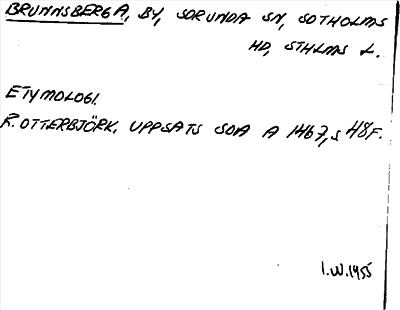 BRUNNSBERGA, BY, SORUNDA SN, SOTHOLMS
HD, STHLMS L.
ETYMOLOGI.
R. OTTERBJÖRK. UPPSATS SOA A 1467, S 48F.
I.W.1955